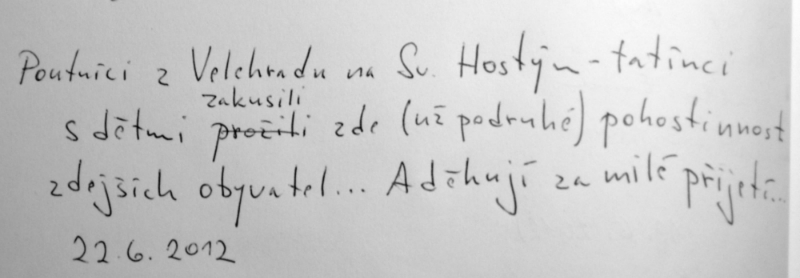 Poutníci z Velehradu na Sv. Hostýn - tatínci
zakusili
s dětmi prožili zde (už podruhé) pohostinnost
zdejších obyvatel... A děkují za milé přijetí...
22.6.2012